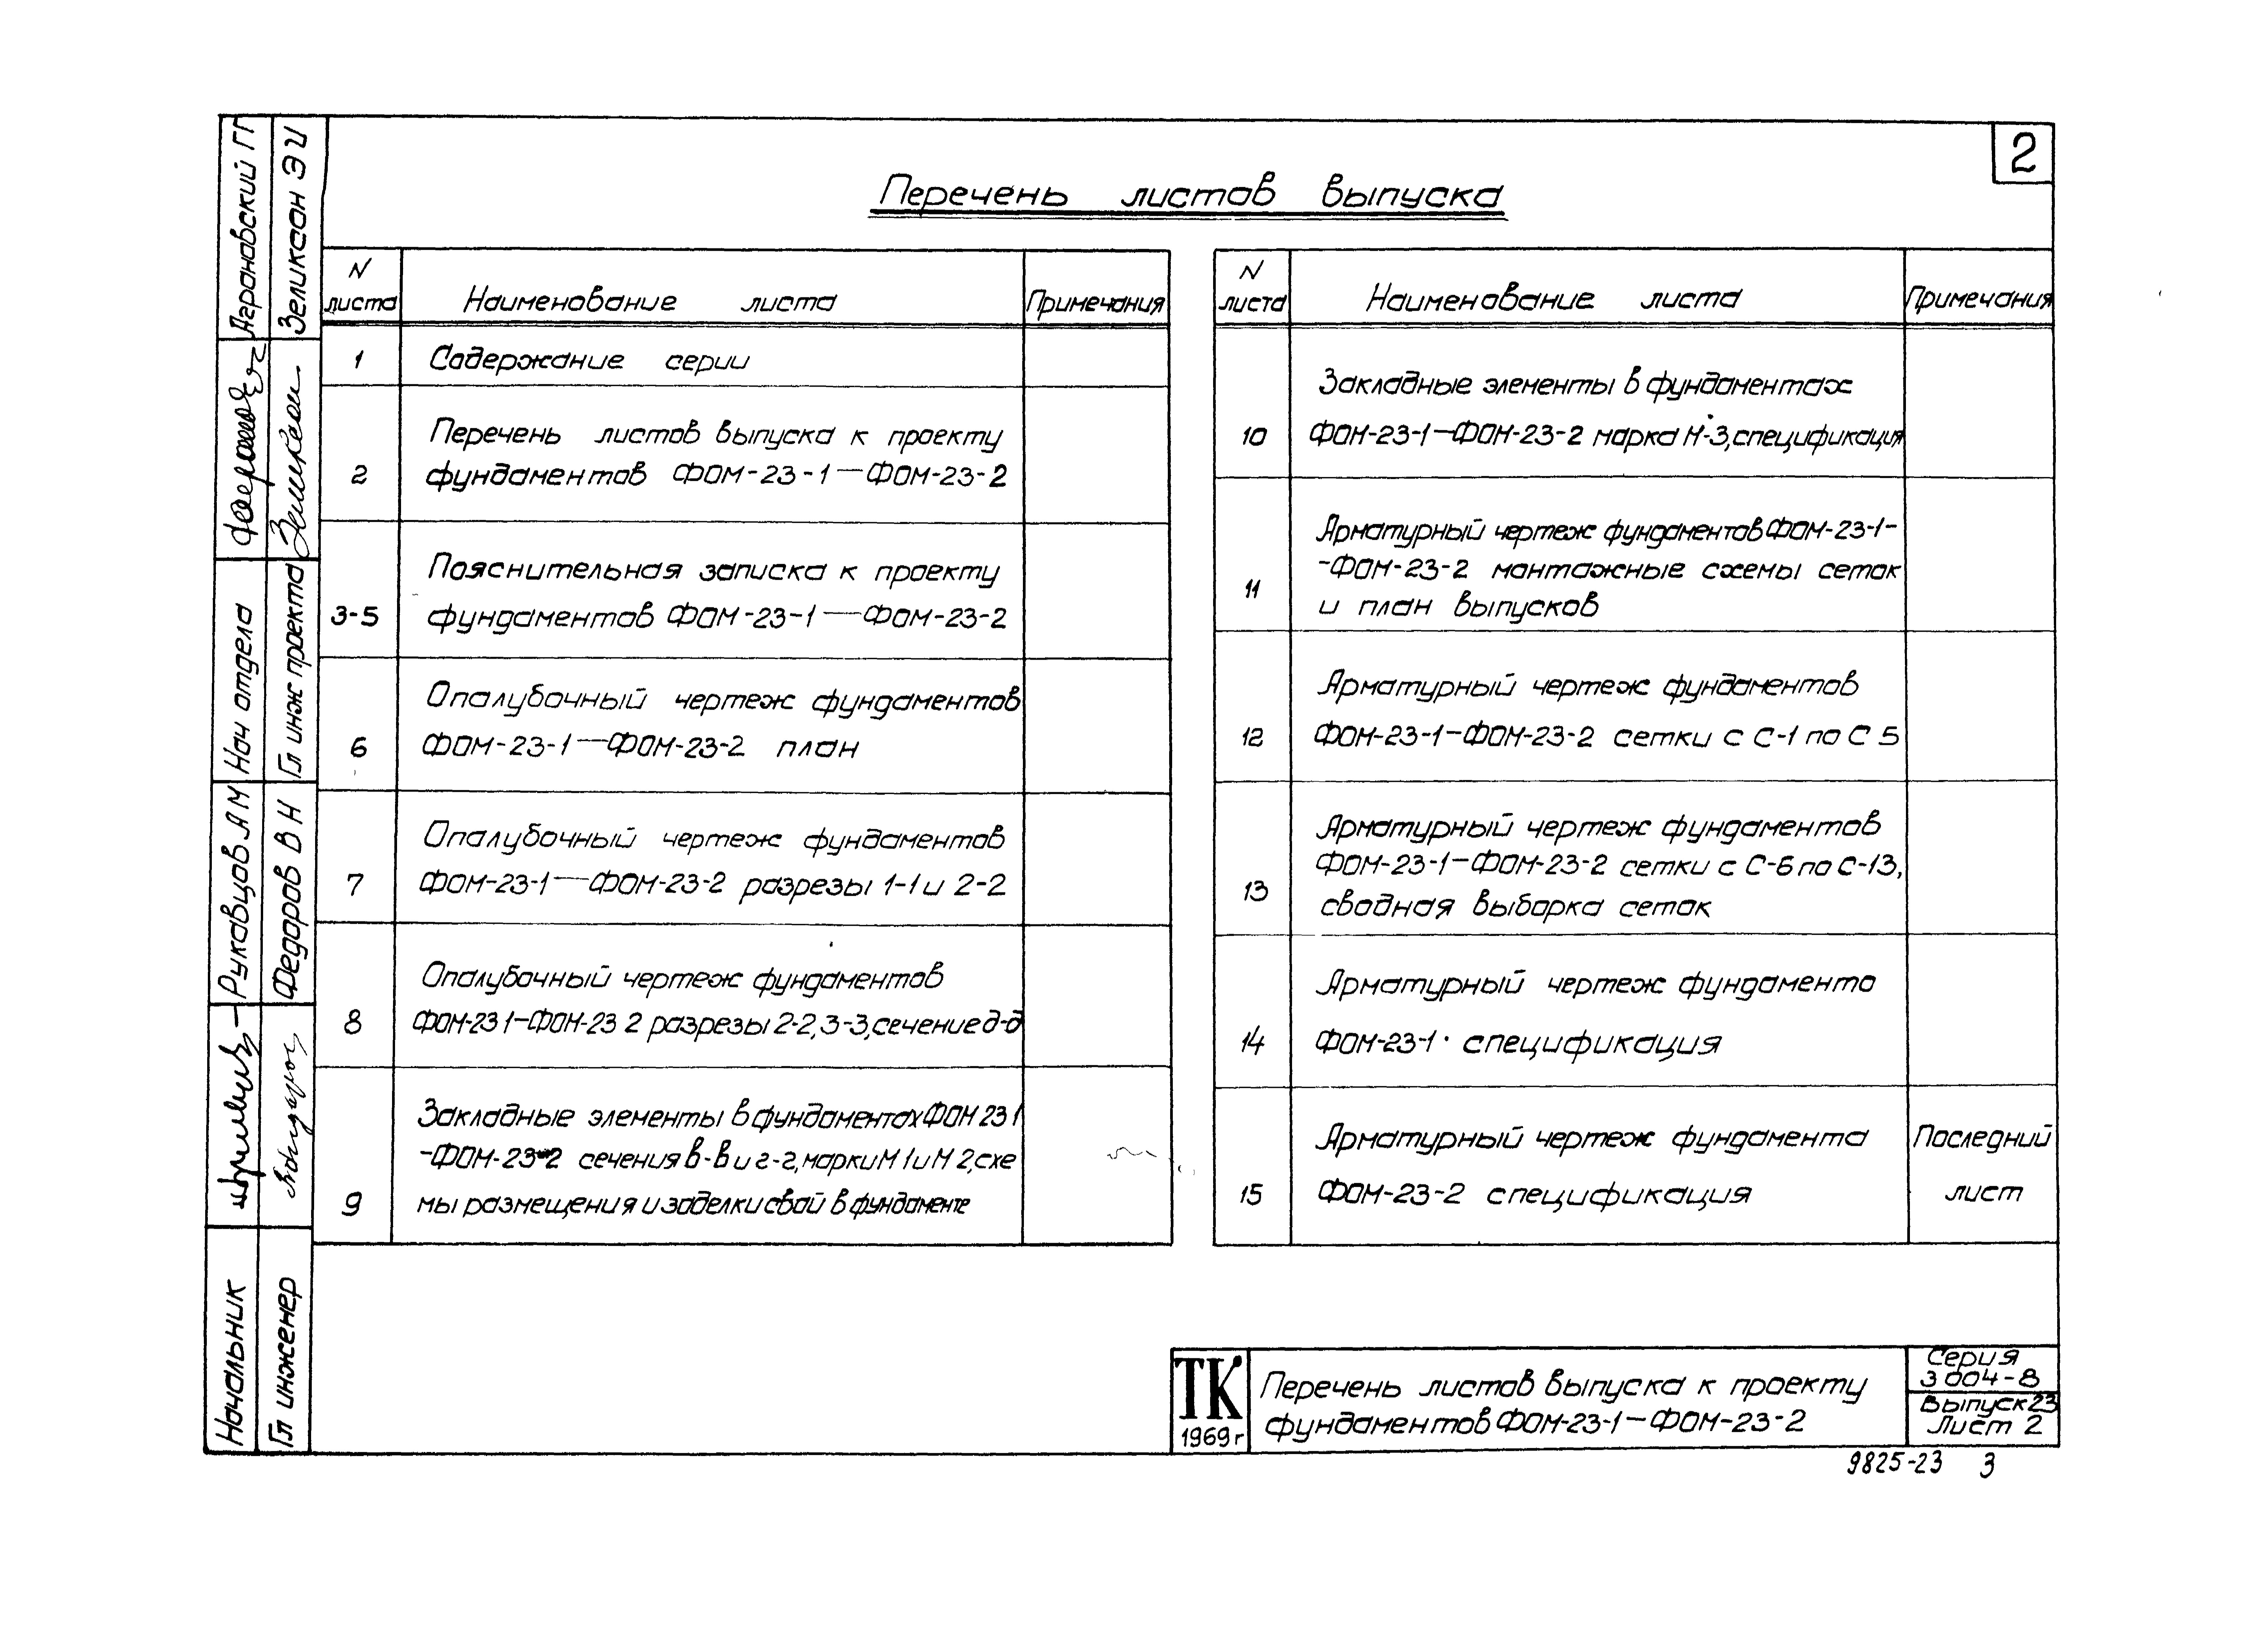 2
Перечень листов выпуска
N листа
Наименование листа
Примечания
1
Содержание серии
2
Перечень листов выпуска к проекту
фундаментов ФОМ-23-1—ФОМ-23-2
3-5
Пояснительная записка к проекту
фундаментов ФОМ-23-1—ФОМ-23-2
6
Опалубочный чертеж фундаментов
ФОМ-23-1—ФОМ-23-2 план
7
Опалубочный чертеж фундаментов
ФОМ-23-1—ФОМ-23-2 разрезы 1-1 и 2-2
8
Опалубочный чертеж фундаментов
ФОМ-23 1—ФОМ-23 2 разрезы 2-2, 3-3, сечение д-д
9
Закладные элементы в фундаментах ФОМ 23 1
-ФОМ-23-2 сечения в-в и г-г, марки М 1 и М 2, схе
мы размещения и заделки свай в фундаменте
N листа
Наименование листа
Примечания
10
Закладные элементы в фундаментах
ФОМ-23-1—ФОМ-23-2 марка Н-3, спецификация
11
Арматурный чертеж фундаментов ФОМ-23-1-
-ФОМ-23-2 монтажные схемы сеток
и план выпусков
12
Арматурный чертеж фундаментов
ФОМ-23-1—ФОМ-23-2 сетки с С-1 по С 5
13
Арматурный чертеж фундаментов
ФОМ-23-1—ФОМ-23-2 сетки с С-6 по С-13,
сводная выборка сеток
14
Арматурный чертеж фундамента
ФОМ-23-1 · спецификация
15
Арматурный чертеж фундамента
ФОМ-23-2 спецификация
Последний
лист
ТК
1969 г
Перечень листов выпуска к проекту
фундаментов ФОМ-23-1—ФОМ-23-2
Серия
3 004-8
Выпуск 23
Лист 2
9825-23 3
Начальник
Рукавцов А М
Нач отдела
Аграновский ГГ
Гл инженер
Федоров В Н
Гл инж проекта
Зеликсон Э И